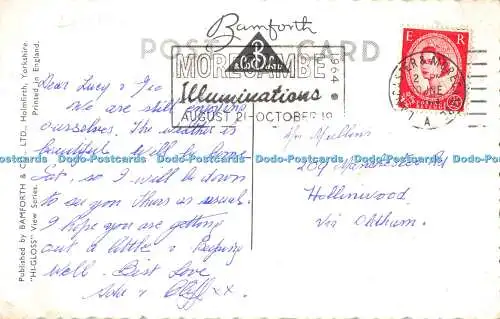 Bamforth
POST CARD
B
& Co Ltd
MORECAMBE
Illuminations
AUGUST 21-OCTOBER 19
1964
E R
2
JNE
A
Published by BAMFORTH & CO. LTD., Holmfirth, Yorkshire.
"HI-GLOSS" View Series. Printed in England.
Dear Lucy & Geo
We are still enjoying
ourselves. The weather is
beautiful. Will be home
Sat, so I will be down
to you Thurs as usual.
I hope you are getting
out a little & keeping
well. Best Love
& Cliff xx
209 Manchester Rd
Hollinwood
Via Oldham.
Dodo-Postcards Dodo-Postcards Dodo-Postcards Dodo-Postcards Dodo-Postcards Dodo-Postcards